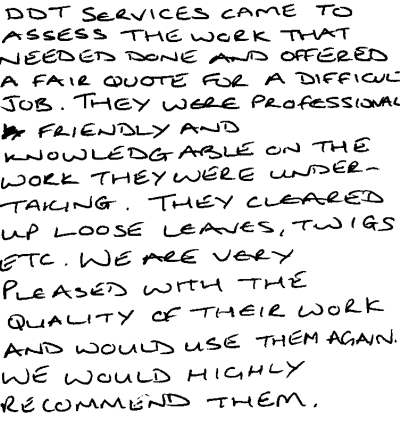 DDT SERVICES CAME TO
ASSESS THE WORK THAT
NEEDED DONE AND OFFERED
A FAIR QUOTE FOR A DIFFICUL
JOB. THEY WERE PROFESSIONAL
FRIENDLY AND
KNOWLEDGABLE ON THE
WORK THEY WERE UNDER-
TAKING. THEY CLEARED
UP LOOSE LEAVES, TWIGS
ETC. WE ARE VERY
PLEASED WITH THE
QUALITY OF THEIR WORK
AND WOULD USE THEM AGAIN.
WE WOULD HIGHLY
RECOMMEND THEM.